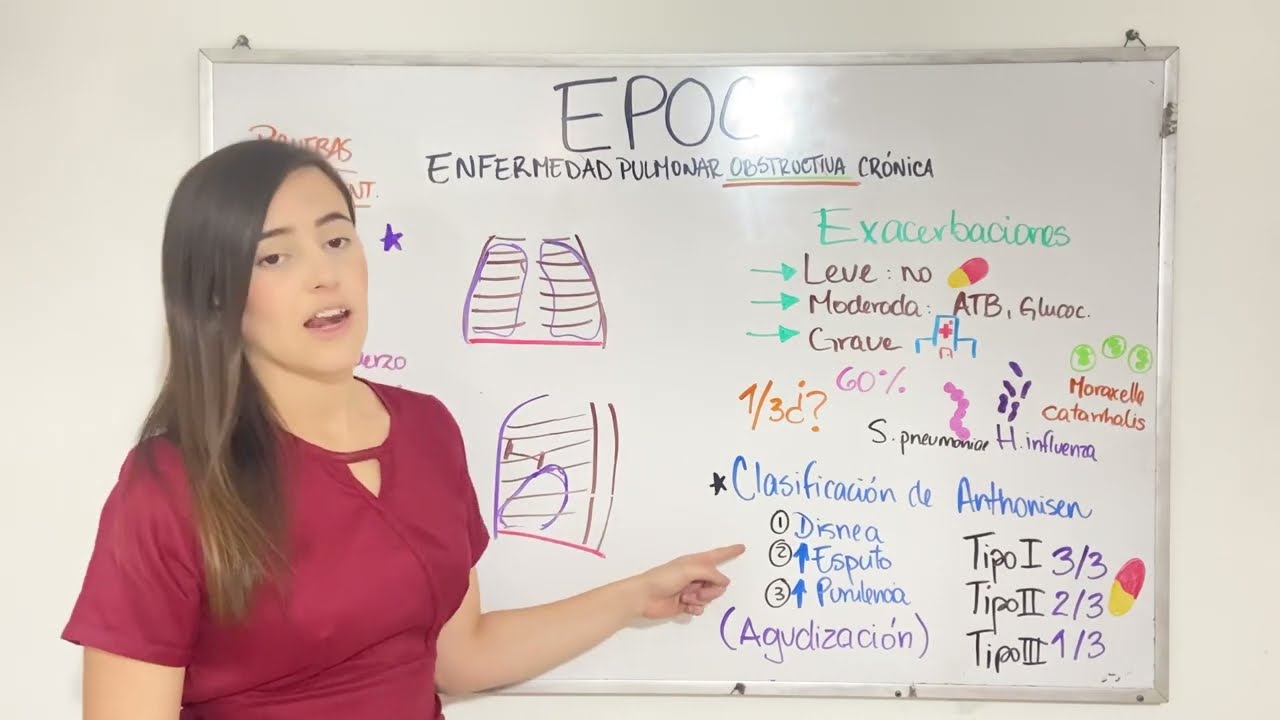 EPOC
ENFERMEDAD PULMONAR OBSTRUCTIVA CRÓNICA
PRUEBAS
NT.
Exacerbaciones
Leve: no
Moderada: ATB, Glucoc.
Grave
1/3¿?
60%
S. pneumoniae
H. influenza
Moraxella
catarrhalis
Clasificación de Anthonisen
1 Disnea
2 ↑ Esputo
3 ↑ Purulencia
(Agudización)
Tipo I 3/3
Tipo II 2/3
Tipo III 1/3